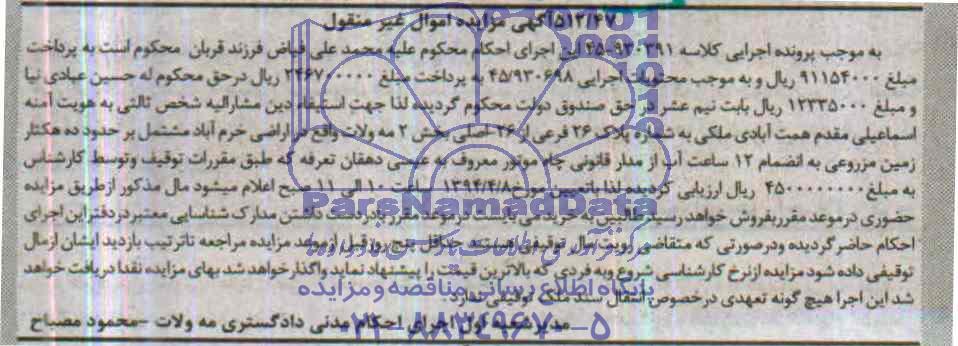 ۵۱۲/۴۷آگهی مزایده اموال غیر منقول
به موجب پرونده اجرایی کلاسه ۹۳۰۳۹۱-۴۵ این اجرای احکام محکوم علیه محمد علی فیاض فرزند قربان محکوم است به پرداخت
مبلغ ۹۱۱۵۴۰۰۰ ریال و به موجب محتویات اجرایی ۴۵/۹۳۰۶۹۸ به پرداخت مبلغ ۲۴۶۷۰۰۰۰۰ ریال درحق محکوم له حسین عبادی نیا
و مبلغ ۱۲۳۳۵۰۰۰ ریال بابت نیم عشر در حق صندوق دولت محکوم گردیده لذا جهت استیفاء دین مشارالیه شخص ثالثی به هویت آمنه
اسماعیلی مقدم همت آبادی ملکی به شماره پلاک ۲۶ فرعی از ۲۶ اصلی بخش ۲ مه ولات واقع در اراضی خرم آباد مشتمل بر حدود ده هکتار
زمین مزروعی به انضمام ۱۲ ساعت آب از مدار قانونی چاه موتور معروف به عیسی دهقان تعرفه که طبق مقررات توقیف وتوسط کارشناس
به مبلغ ۴۵۰۰۰۰۰۰۰۰ ریال ارزیابی گردیده لذا باتعیین مورخ۱۳۹۴/۴/۸ ساعت ۱۰ الی ۱۱ صبح اعلام میشود مال مذکور ازطریق مزایده
حضوری درموعد مقرربفروش خواهد رسید طالبین به خرید می بایست درموعد مقرر بادردست داشتن مدارک شناسایی معتبردردفتراین اجرای
احکام حاضرگردیده ودرصورتی که متقاضی رویت مال توقیفی هستند حداقل پنج روزقبل ازموعد مزایده مراجعه تاترتیب بازدید ایشان ازمال
توقیفی داده شود مزایده ازنرخ کارشناسی شروع وبه فردی که بالاترین قیمت را پیشنهاد نماید واگذارخواهد شد بهای مزایده نقدا دریافت خواهد
شد این اجرا هیچ گونه تعهدی درخصوص انتقال سند ملک توقیفی ندارد.
مدیرشعبه اول اجرای احکام مدنی دادگستری مه ولات -محمود مصباح
ParsNamadData
پایگاه اطلاع رسانی مناقصه و مزایده
۰۲۱-۸۸۳۴۹۶۷۰-۵